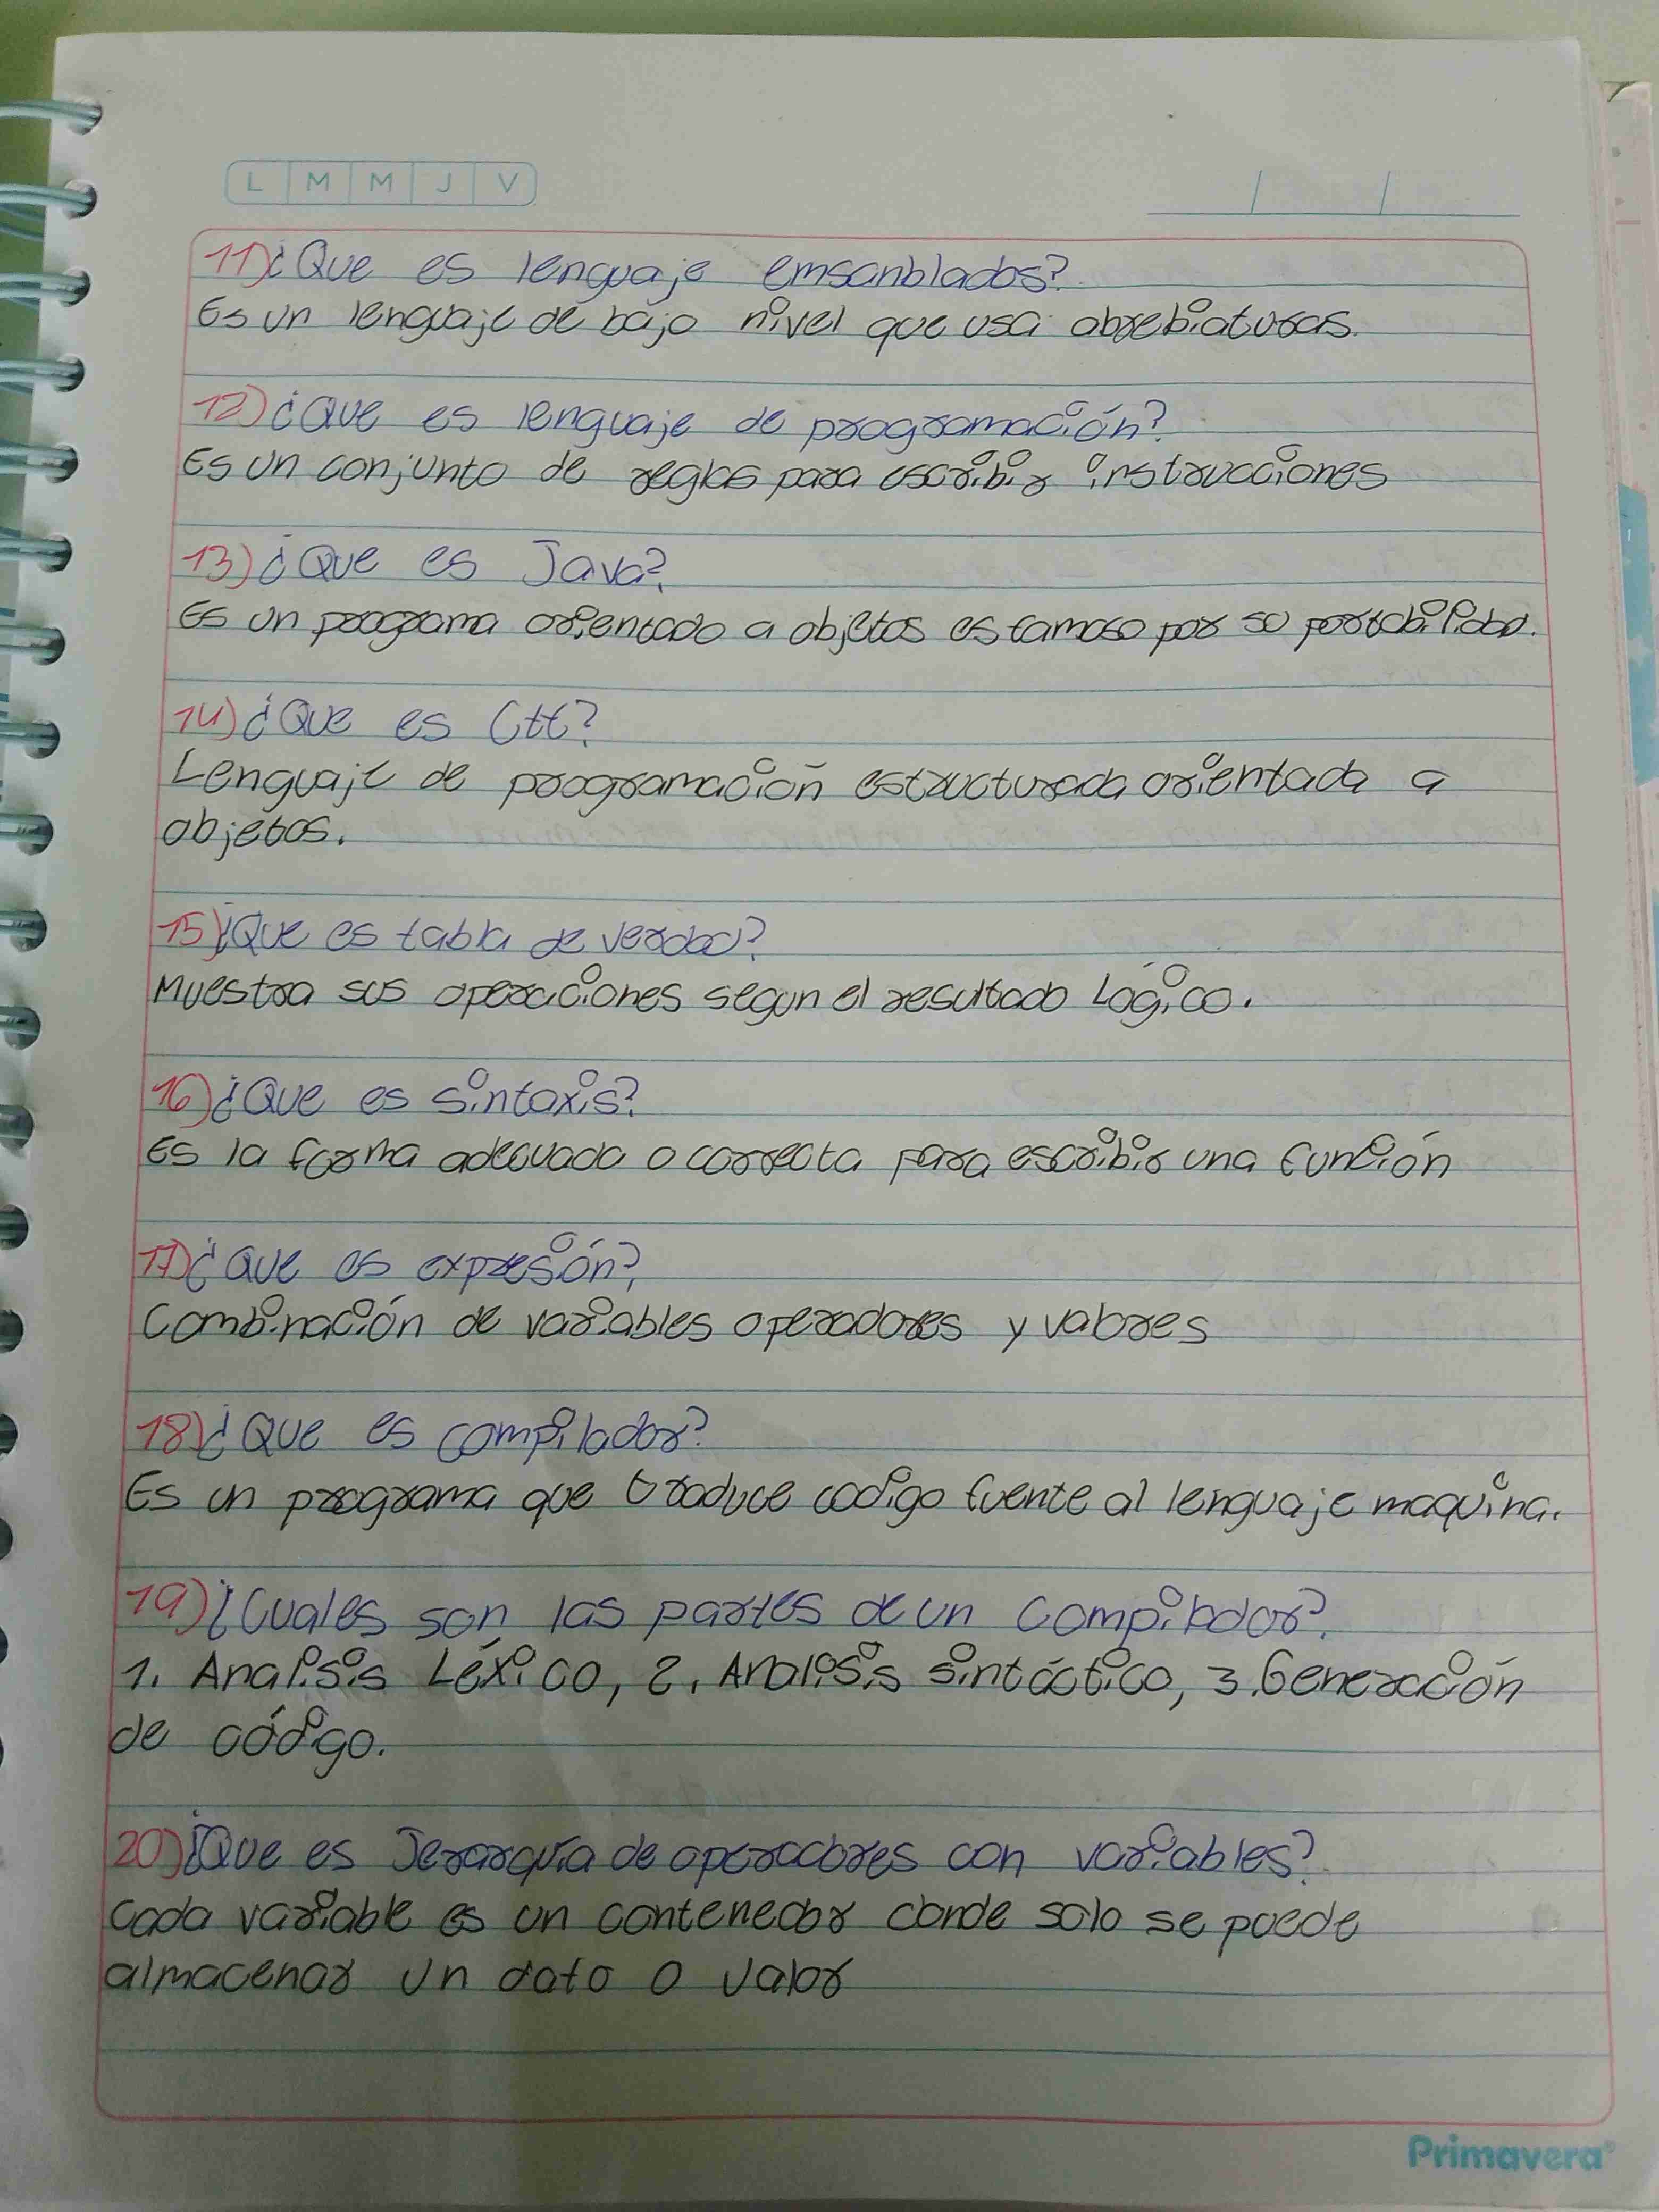 L M M J V
11) ¿Que es lenguaje emsanblados?
Es un lenguaje de bajo nivel que usa abrebiaturas.
12) ¿Que es lenguaje de programación?
Es un conjunto de reglas para escribir instrucciones
13) ¿Que es Java?
Es un programa orientado a objetos es famoso por su portabilidad.
14) ¿Que es C++?
Lenguaje de programación estructurada orientada a
objetos.
15) ¿Que es tabla de verdad?
Muestra sus operaciones segun el resultado Lógico.
16) ¿Que es sintaxis?
Es la forma adecuada o correcta para escribir una función
17) ¿Que es expresión?
Combinación de variables operadores y valores
18) ¿Que es compilador?
Es un programa que traduce codigo fuente al lenguaje maquina.
19) ¿Cuales son las partes de un Compilador?
1. Analisis Léxico, 2. Analisis sintáctico, 3. Generación
de código.
20) ¿Que es Jerarquía de operadores con variables?
Cada variable es un contenedor donde solo se puede
almacenar un dato o valor
Primavera